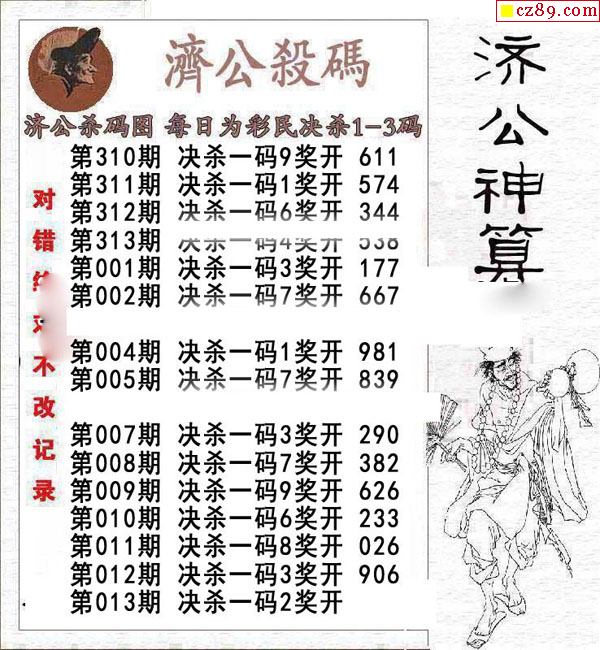 cz89.com
濟公殺碼
济公杀码图 每日为彩民决杀1-3码
第310期 决杀一码9奖开 611
第311期 决杀一码1奖开 574
第312期 决杀一码6奖开 344
第313期 决杀一码4奖开 538
第001期 决杀一码3奖开 177
第002期 决杀一码7奖开 667
第004期 决杀一码1奖开 981
第005期 决杀一码7奖开 839
第007期 决杀一码3奖开 290
第008期 决杀一码7奖开 382
第009期 决杀一码9奖开 626
第010期 决杀一码6奖开 233
第011期 决杀一码8奖开 026
第012期 决杀一码3奖开 906
第013期 决杀一码2奖开
对错不改记录
济公神算